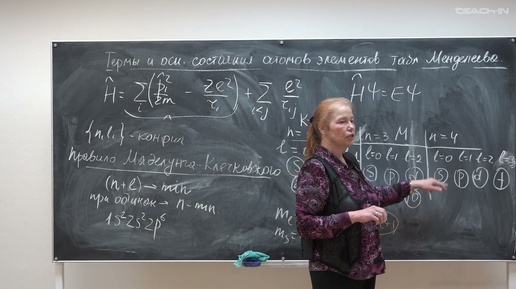 TEACH-IN
Термы и осн. состояния атомов элементов табл Менделеева.
Ĥ = Σ_i (p̂_i²/2m − ze²/r_i) + Σ_{i<j} e²/r_ij
ĤΨ = EΨ
{n_i l_i} - конфиг
Правило Маделунга-Клечковского
(n+l) → min
при одинак → n = min
1s² 2s² 2p⁶
K
n=
l=
s
n=3, M
l=0 l=1 l=2
s p d
n=4
l=0 l=1 l=2 l=3
s p d f
m_l
m_s=